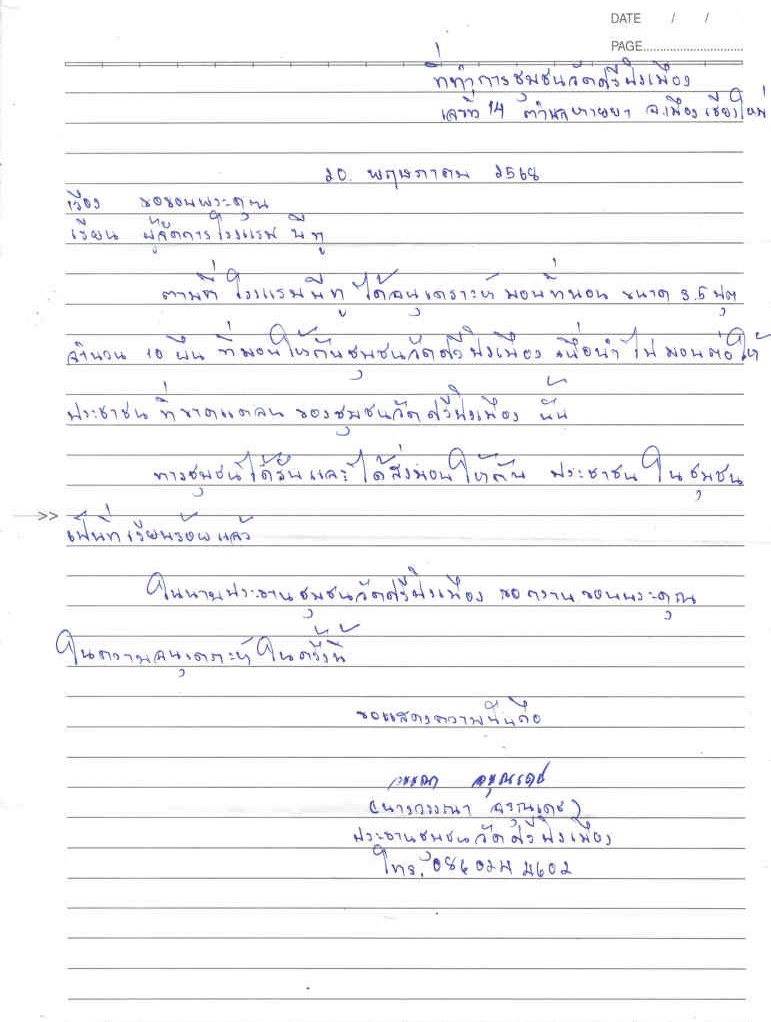 DATE / /
PAGE
ที่ทำการชุมชนวัดศรีปิงเมือง
เลขที่ 14 ตำบลหายยา อ.เมือง เชียงใหม่
20 พฤษภาคม 2568
เรื่อง ขอขอบพระคุณ
เรียน ผู้จัดการโรงแรม บีทู
ตามที่ โรงแรมบีทู ได้อนุเคราะห์ มอบที่นอน ขนาด 3.5 ฟุต
จำนวน 10 ผืน ที่มอบให้กับชุมชนวัดศรีปิงเมือง เพื่อนำไปมอบต่อให้
ประชาชน ที่ขาดแคลน ของชุมชนวัดศรีปิงเมือง นั้น
ทางชุมชนได้รับและได้ส่งมอบให้กับ ประชาชน ในชุมชน
>> เป็นที่เรียบร้อยแล้ว
ในนามประธานชุมชนวัดศรีปิงเมือง ขอกราบขอบพระคุณ
ในความอนุเคราะห์ในครั้งนี้
ขอแสดงความนับถือ
(นางวรรณา อรุณเดช)
ประธานชุมชนวัดศรีปิงเมือง
โทร.